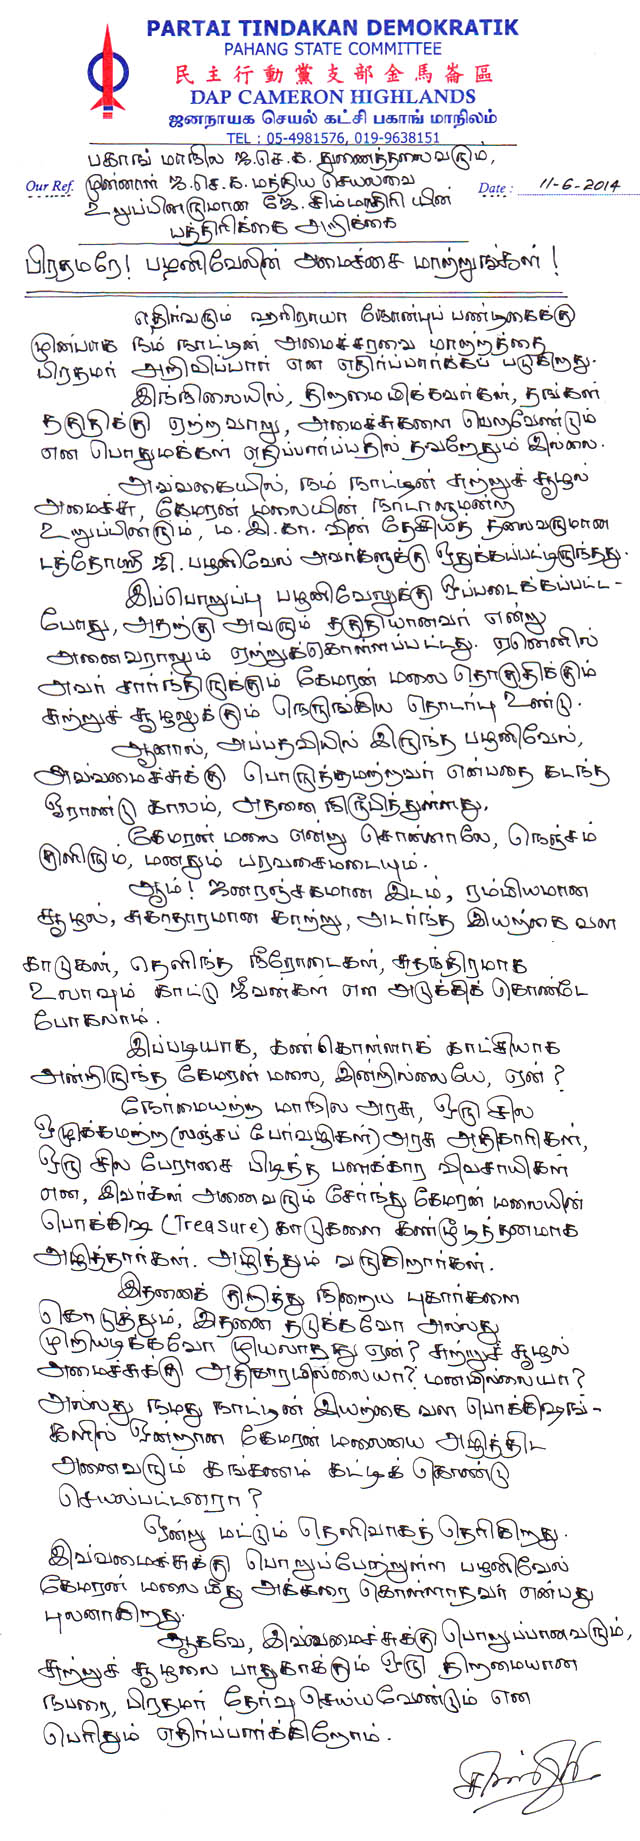 PARTAI TINDAKAN DEMOKRATIK
PAHANG STATE COMMITTEE
民主行動黨支部金馬崙區
DAP CAMERON HIGHLANDS
ஜனநாயக செயல் கட்சி பகாங் மாநிலம்
TEL : 05-4981576, 019-9638151
பகாங் மாநில ஜ.செ.க. துணைத்தலைவரும்,
Our Ref. முன்னாள் ஜ.செ.க. மத்திய செயலவை Date : 11-6-2014
உறுப்பினருமான ஜே. சிம்மாதிரி யின்
பத்திரிக்கை அறிக்கை
பிரதமரே! பழனிவேலின் அமைச்சை மாற்றுங்கள்!
எதிர்வரும் ஹரிராயா நோன்புப் பண்டிகைக்கு
முன்பாக நம் நாட்டின் அமைச்சரவை மாற்றத்தை
பிரதமர் அறிவிப்பார் என எதிர்பார்க்கப் படுகிறது.
இந்நிலையில், திறமைமிக்கவர்கள், தங்கள்
தகுதிக்கு ஏற்றவாறு, அமைச்சுகளை பெறவேண்டும்
என பொதுமக்கள் எதிப்பார்ப்பதில் தவறேதும் இல்லை.
அவ்வகையில், நம் நாட்டின் சுற்றுச் சூழல்
அமைச்சு, கேமரன் மலையின் நாடாளுமன்ற
உறுப்பினரும், ம.இ.கா. வின் தேசியத் தலைவருமான
டத்தோஸ்ரீ ஜி. பழனிவேல் அவர்களுக்கு ஒதுக்கப்பட்டிருந்தது.
இப்பொறுப்பு பழனிவேலுக்கு ஒப்படைக்கப்பட்ட-
போது, அதற்கு அவரும் தகுதியானவர் என்று
அனைவராலும் ஏற்றுக்கொள்ளப்பட்டது. ஏனெனில்
அவர் சார்ந்திருக்கும் கேமரன் மலை தொகுதிக்கும்
சுற்றுச் சூழலுக்கும் நெருங்கிய தொடர்பு உண்டு.
ஆனால், அப்பதவியில் இருந்த பழனிவேல்,
அவ்வமைச்சுக்கு பொருத்தமற்றவர் என்பதை கடந்த
ஓராண்டு காலம், அதனை நிரூபித்துள்ளது.
கேமரன் மலை என்று சொன்னாலே, நெஞ்சம்
குளிரும், மனதும் பரவசைமடையும்.
ஆம்! ஜனரஞ்சகமான இடம், ரம்மியமான
சூழல், சுகாதாரமான காற்று, அடர்ந்த இயற்கை வள
காடுகள், தெளிந்த நீரோடைகள், சுதந்திரமாக
உலாவும் காட்டு ஜீவன்கள் என அடுக்கிக் கொண்டே
போகலாம்.
இப்படியாக, கண்கொள்ளாக் காட்சியாக
அன்றிருந்த கேமரன் மலை, இன்றில்லையே, ஏன்?
நேர்மையற்ற மாநில அரசு, ஒரு சில
ஒழுக்கமற்ற (லஞ்சப் பேர்வழிகள்) அரசு அதிகாரிகள்,
ஒரு சில பேராசை பிடித்த பணக்கார விவசாயிகள்
என, இவர்கள் அனைவரும் சேர்ந்து கேமரன் மலையின்
பொக்கிஷ (Treasure) காடுகளை கண்மூடித்தனமாக
அழித்தார்கள். அழித்தும் வருகிறார்கள்.
இதனைக் குறித்து நிறைய புகார்களை
கொடுத்தும், இதனை தடுக்கவோ அல்லது
முறியடிக்கவோ முயலாதது ஏன்? சுற்றுச் சூழல்
அமைச்சுக்கு அதிகாரமில்லையா? மனமில்லையா?
அல்லது நமது நாட்டின் இயற்கை வள பொக்கிஷங்-
களில் ஒன்றான கேமரன் மலையை அழித்திட
அனைவரும் கங்கணம் கட்டிக் கொண்டு
செயல்பட்டனரா?
ஒன்று மட்டும் தெளிவாகத் தெரிகிறது.
இவ்வமைச்சுக்கு பொறுப்பேற்றுள்ள பழனிவேல்
கேமரன் மலை மீது அக்கரை கொள்ளாதவர் என்பது
புலனாகிறது.
ஆகவே, இவ்வமைச்சுக்கு பொறுப்பானவரும்,
சுற்றுச் சூழலை பாதுகாக்கும் ஒரு திறமையான
நபரை, பிரதமர் தேர்வு செய்யவேண்டும் என
பெரிதும் எதிர்ப்பார்க்கிறோம்.